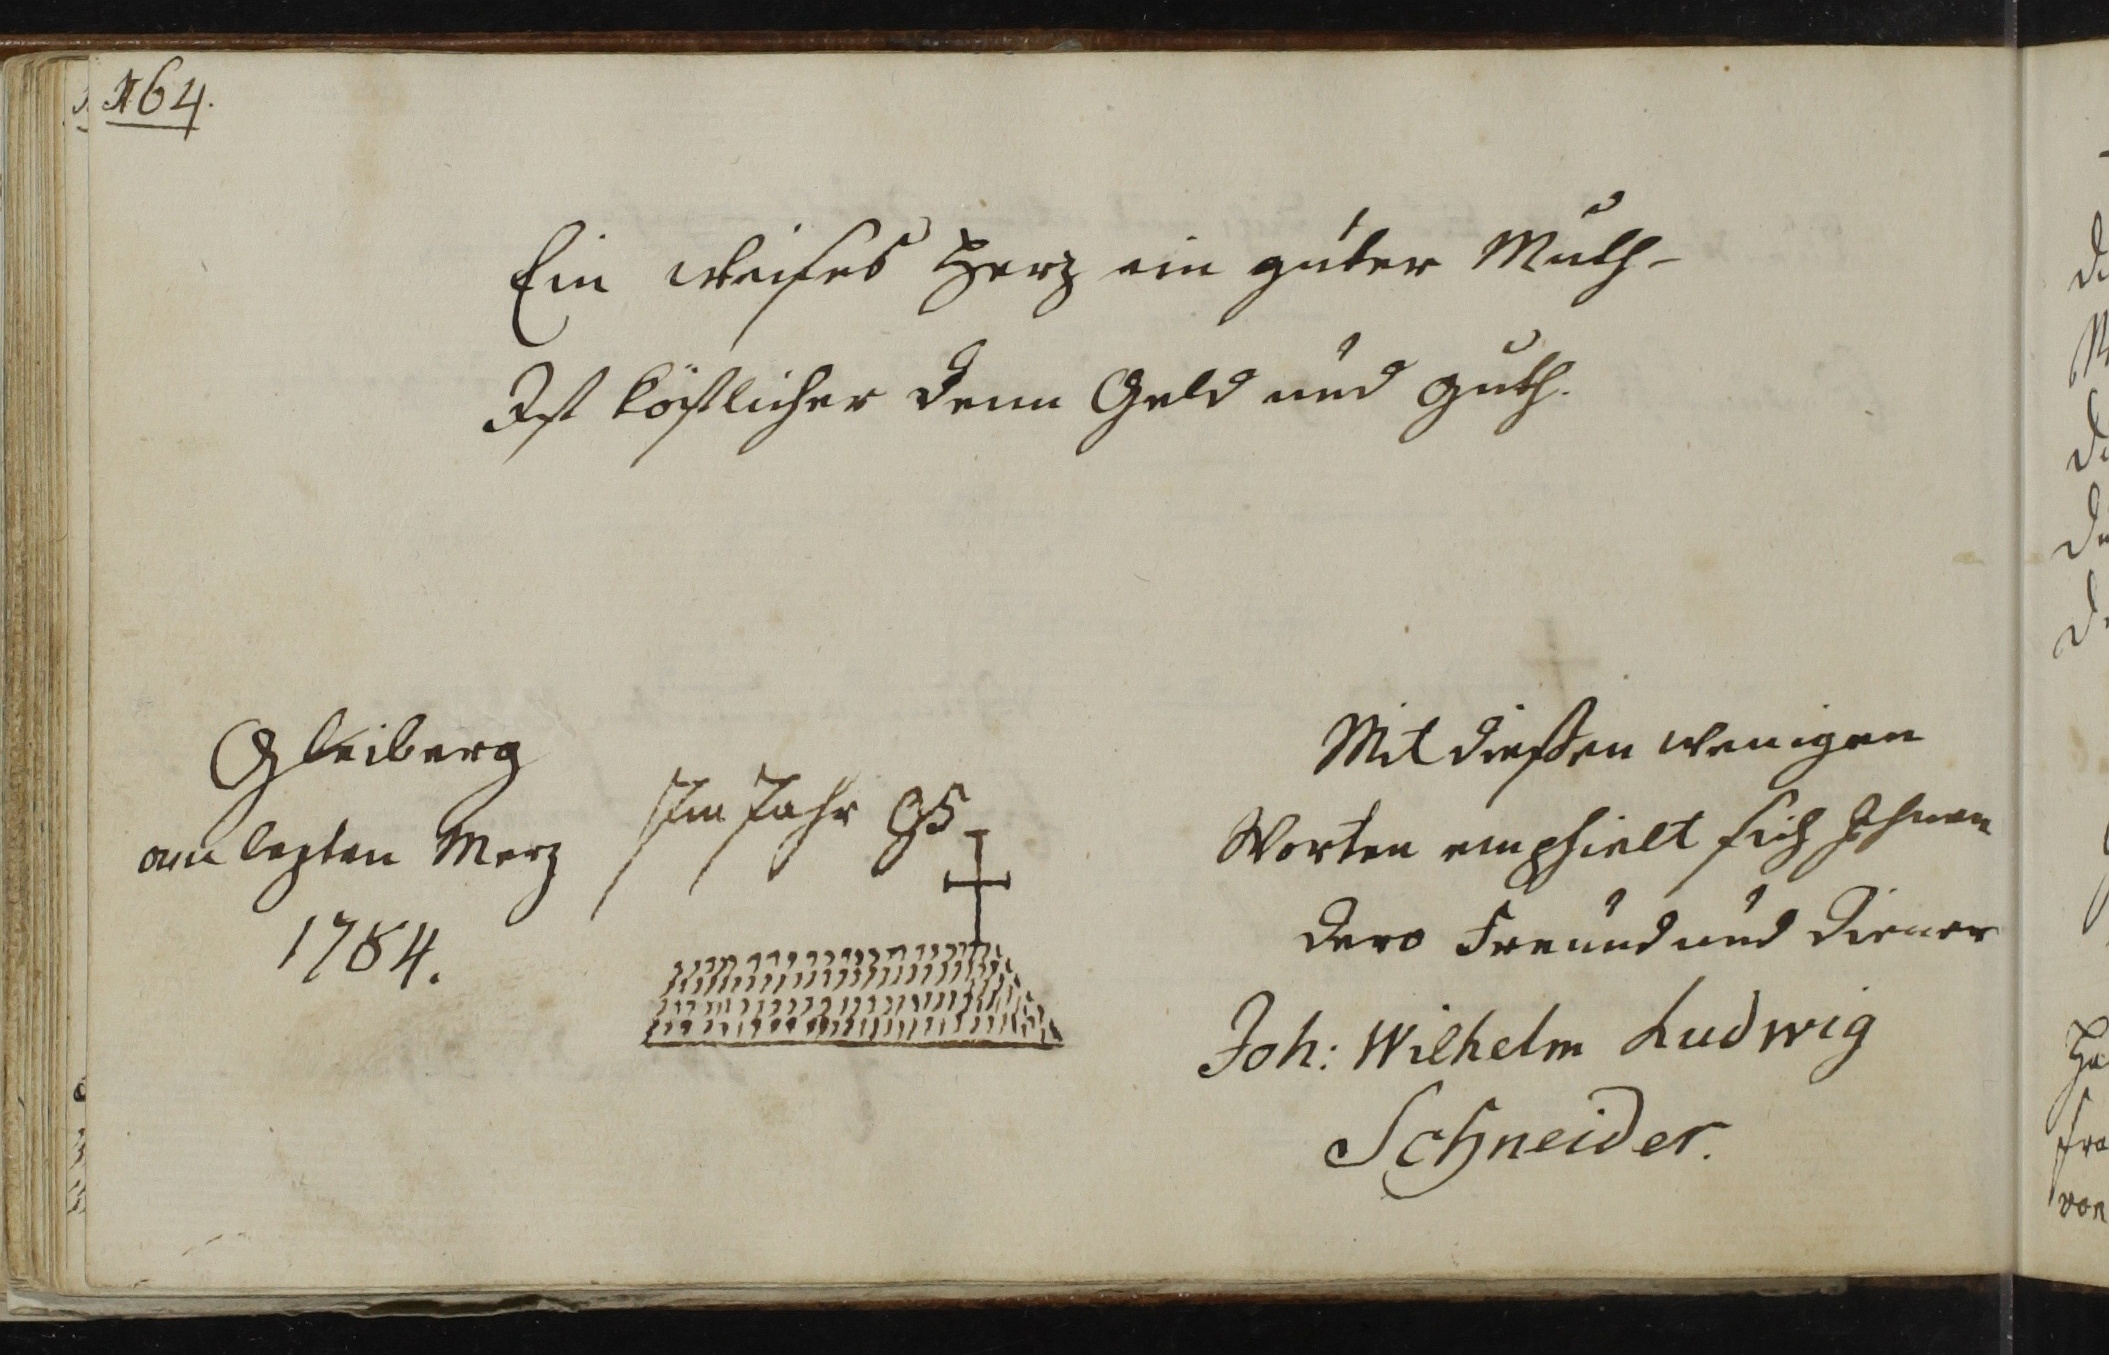 164.
Ein weises Herz ein guter Muth-
Ist köstlicher denn Geld und guth.
Gleiberg
am lezten Merz
1784.
Im Jahr 95
Mit dießen wenigen
Worten emphielt sich Ihnen
dero Freund und Diener
Joh: Wilhelm Ludwig
Schneider.